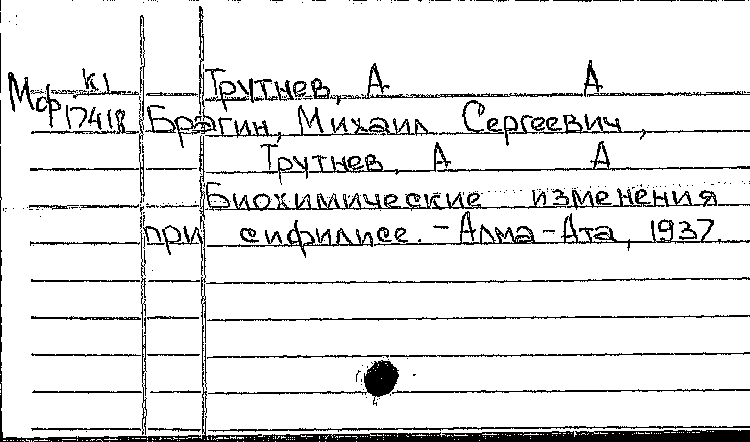 К1 Трутнев, А А
Мф 17418 Брагин, Михаил Сергеевич,
Трутнев, А А
Биохимические изменения
при сифилисе. - Алма-Ата, 1937.